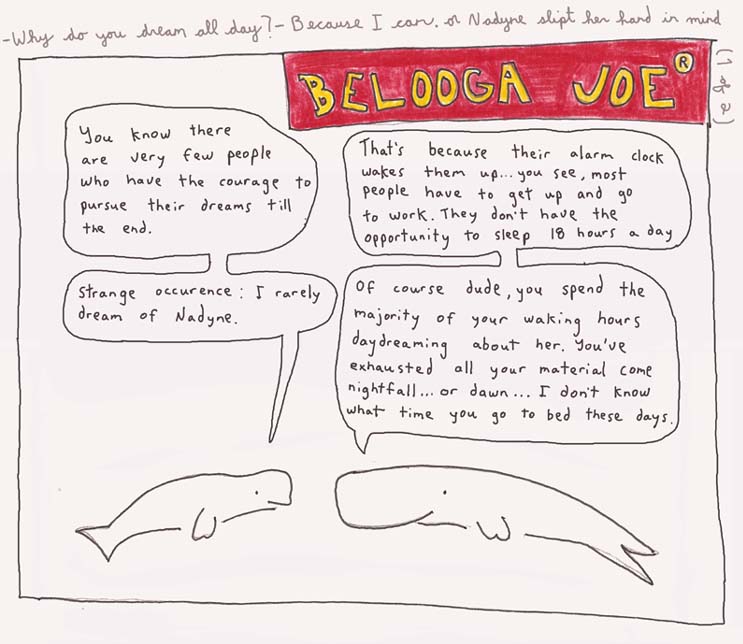 -Why do you dream all day?- Because I can. or Nadyne slipt her hand in mind
(1 of 2)
BELOOGA JOE®
You know there
are very few people
who have the courage to
pursue their dreams till
the end.
That's because their alarm clock
wakes them up... you see, most
people have to get up and go
to work. They don't have the
opportunity to sleep 18 hours a day
Strange occurence: I rarely
dream of Nadyne.
Of course dude, you spend the
majority of your waking hours
daydreaming about her. You've
exhausted all your material come
nightfall... or dawn... I don't know
what time you go to bed these days.